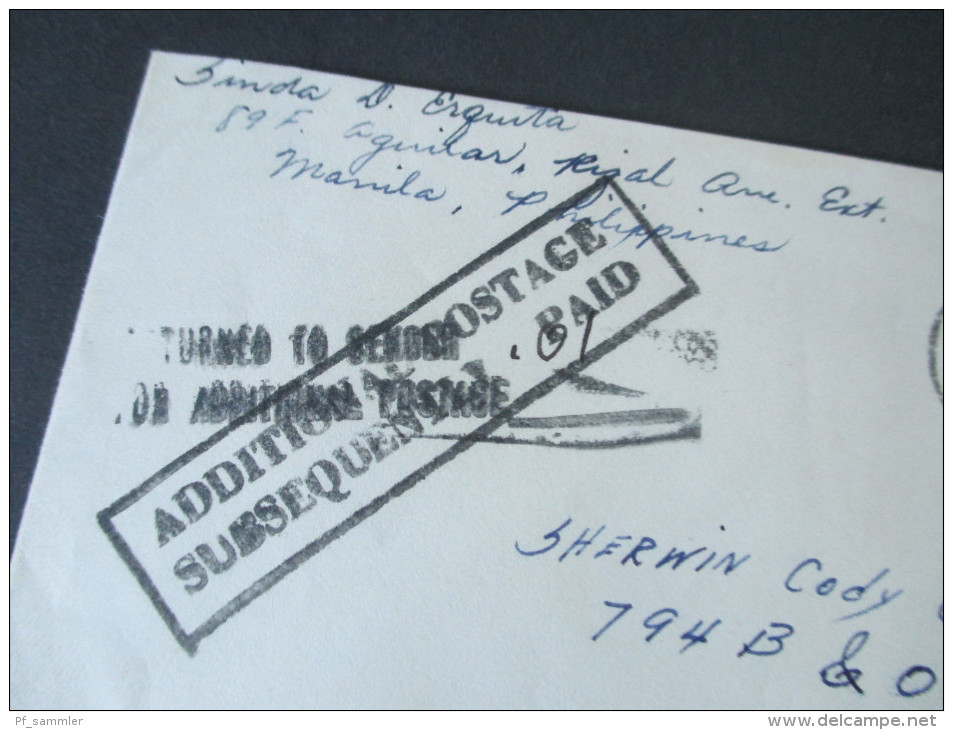 Linda D. Erquita
89 F. Aguilar, Rizal Ave. Ext.
Manila, Philippines
ADDITIONAL POSTAGE
SUBSEQUENTLY PAID
.01
TURNED TO SENDER
OR ADDITIONAL POSTAGE
SHERWIN Cody
794 B & O
Pf_sammler
www.delcampe.net